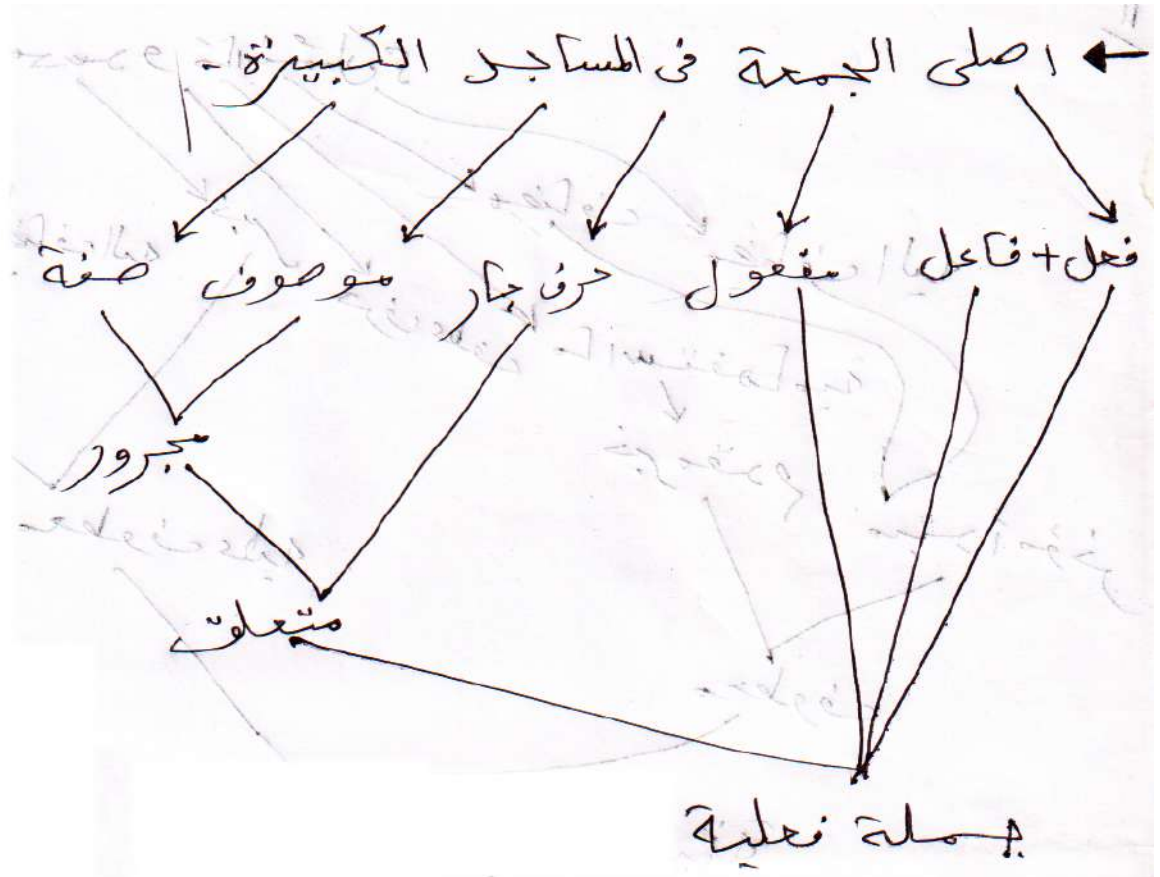 ← اصلى الجمعة فى المساجد الكبيرة.
فعل + فاعل مفعول حرف جار موصوف صفة
مجرور
متعلق
جملة فعلية